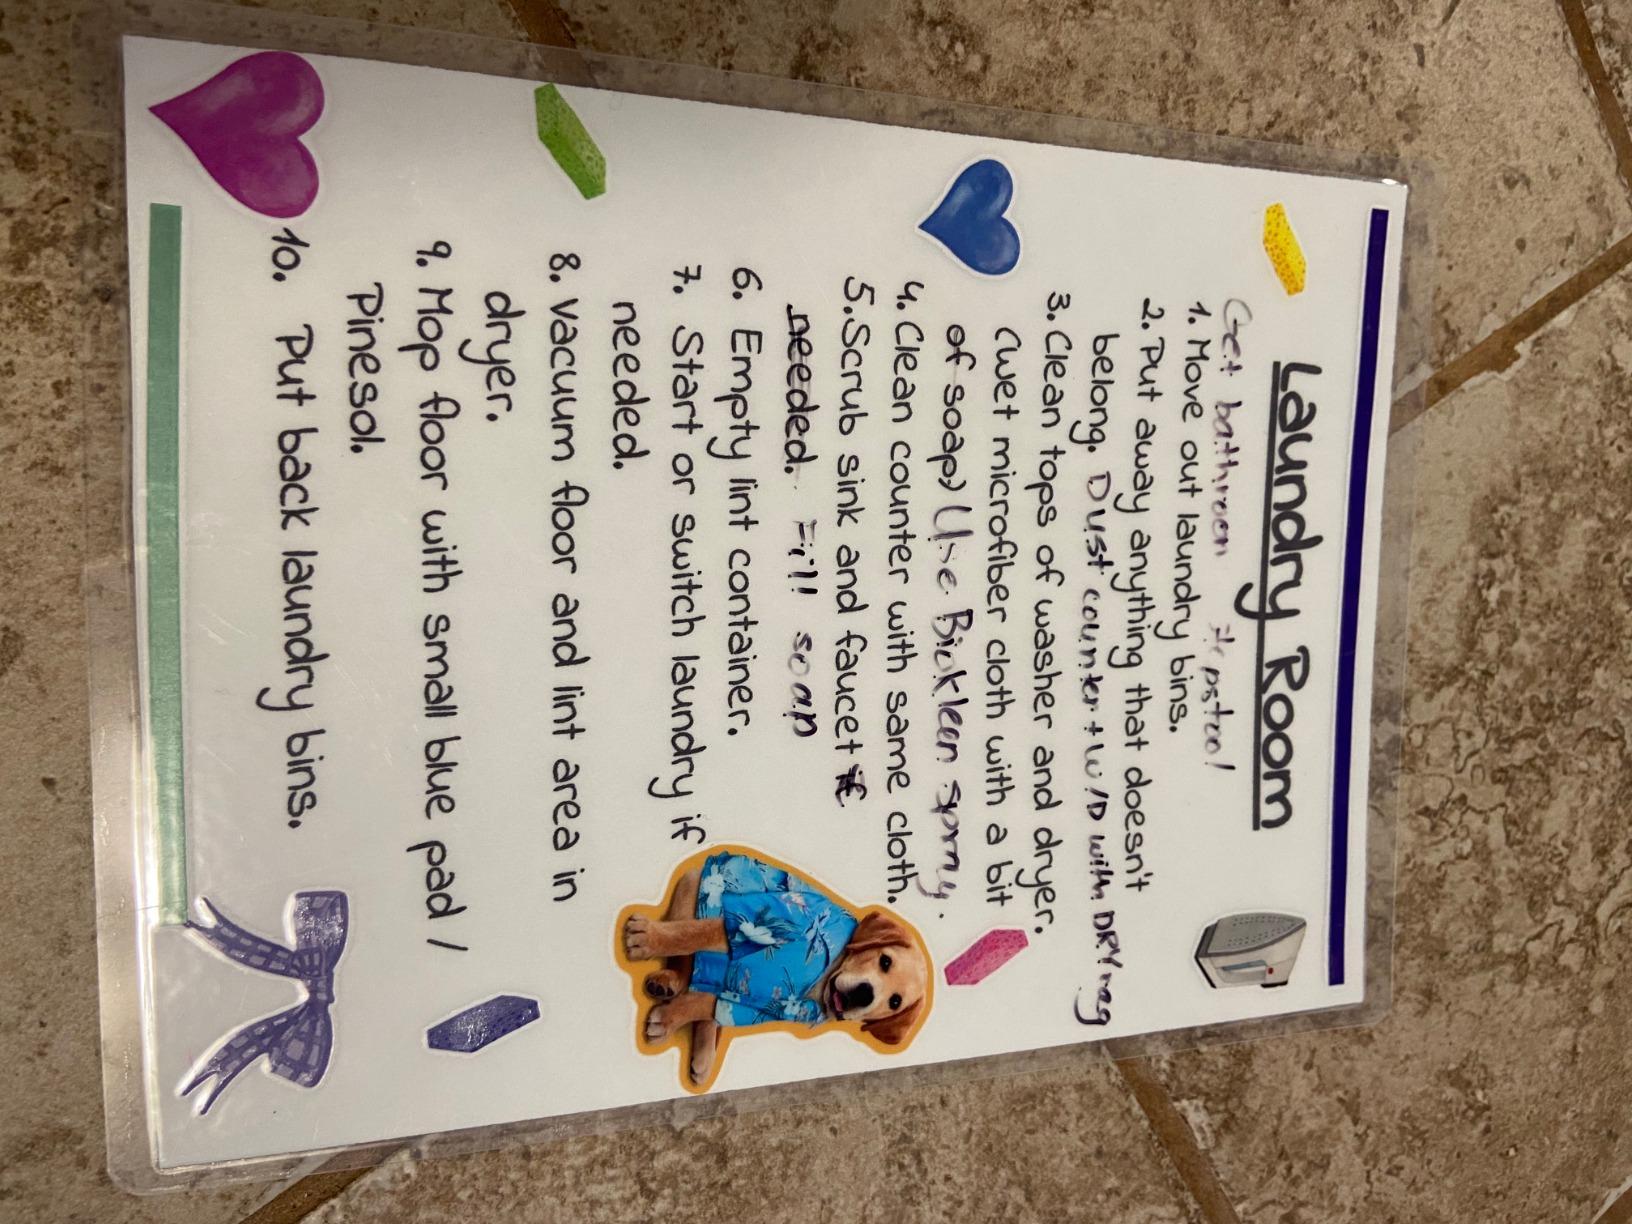 Laundry Room
Get bathroom stepstool
1. Move out laundry bins.
2. Put away anything that doesn't
belong. Dust counter + W/D with DRY rag
3. Clean tops of washer and dryer.
(wet microfiber cloth with a bit
of soap) Use Biokleen spray.
4. Clean counter with same cloth.
5. Scrub sink and faucet if
needed. Fill soap
6. Empty lint container.
7. Start or switch laundry if
needed.
8. Vacuum floor and lint area in
dryer.
9. Mop floor with small blue pad /
Pinesol.
10. Put back laundry bins.